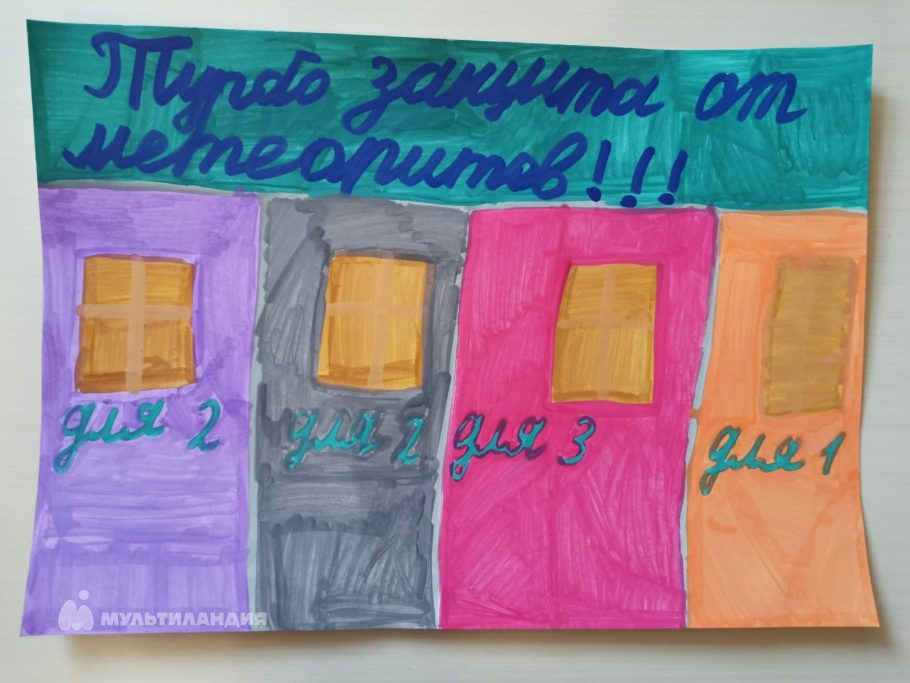 Турбо защита от
метеоритов!!!
для 2
для 2
для 3
для 1
МУЛЬТИЛАНДИЯ